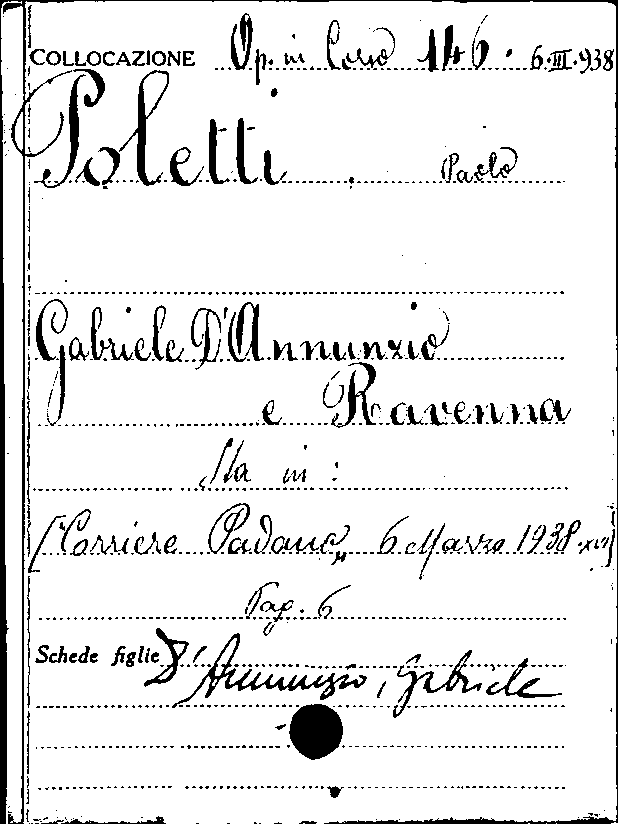 COLLOCAZIONE Op. in Corso 146. 6.III.938
Poletti . Paolo
Gabriele D'Annunzio
e Ravenna
Sta in :
["Corriere Padano„ 6 Marzo 1938.XVI]
Pag. 6
Schede figlie D'Annunzio, Gabriele